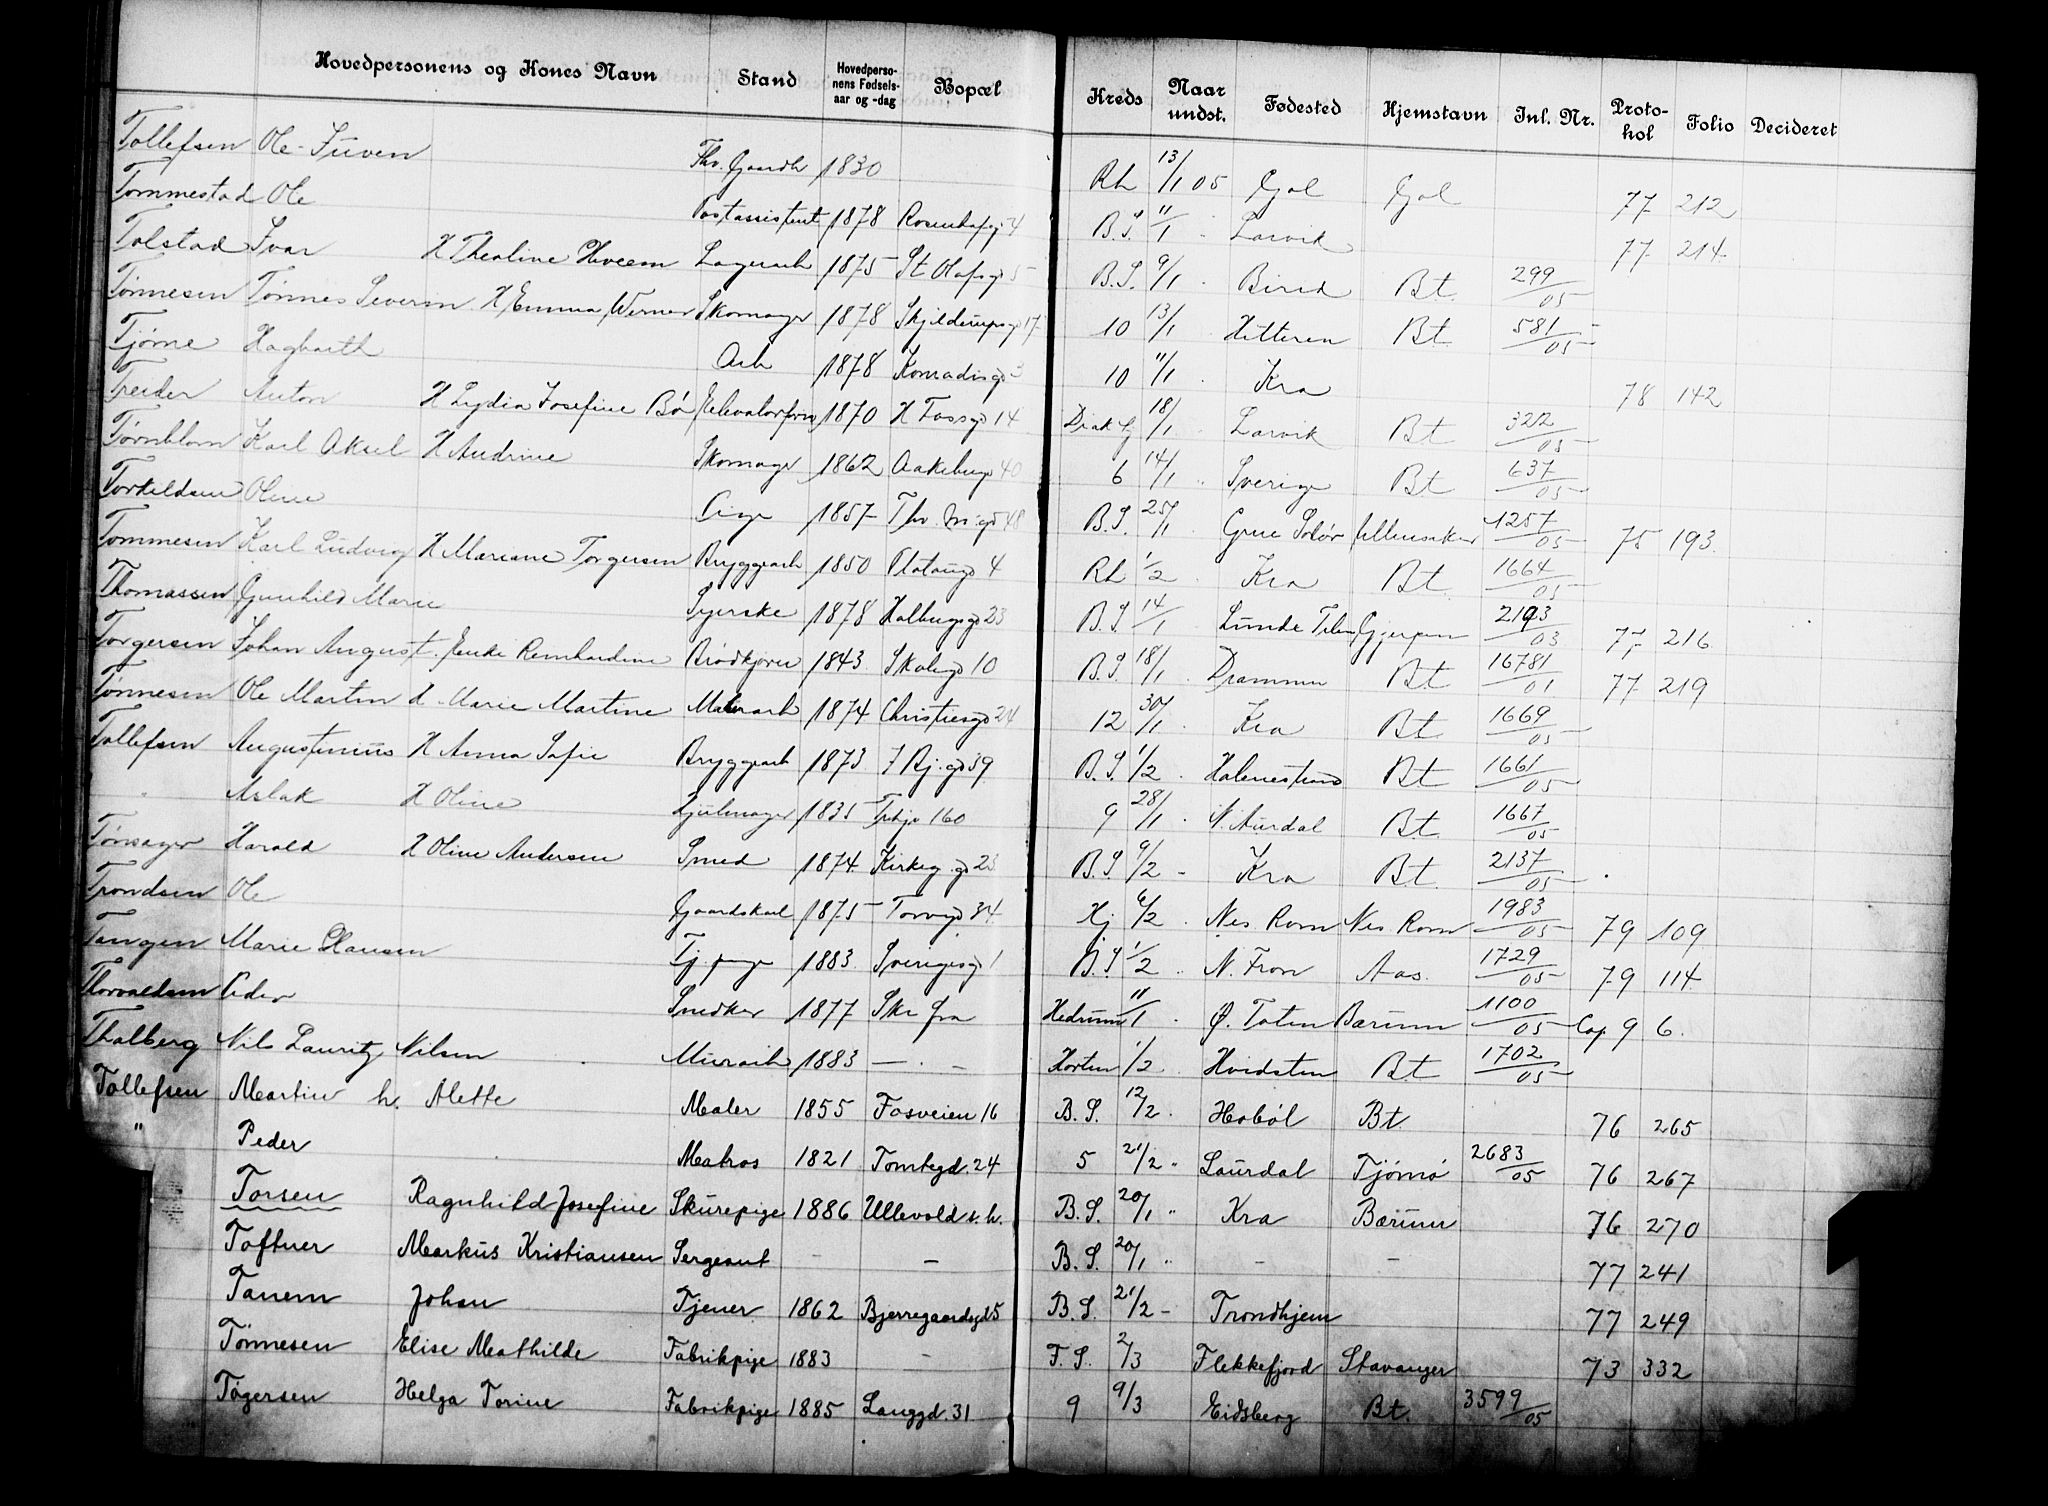 Hovedpersonens og Kones Navn Stand Hovedperso-nens Fødsels-aar og -dag Bopæl Kreds Naar undst. Fødested Hjemstavn Inl. Nr. Proto-kol Folio Decideret
Tollefsen Ole Juven Fhv. Gaardbr 1830 Rh 13/1 05 Gol Gol 77 212
Tommestad Ole Postassistent 1878 Rosenhofgd 4 B.S. 11/1 Larvik 77 214
Tolstad Ivar H Thealine Hveem Lagerarb 1875 St Olafsgd 5 B.S. 9/1 Birid Bt. 299/05
Tønnesen Tønnes Severin H Emma Werner Skomager 1878 Skjelderupsgd 17 10 13/1 Hitteren Bt. 581/05
Tjørne Hagbarth Arb 1878 Konradisgd 3 10 11/1 Kra 78 142
Treider Anton H Lydia Josefine Bø Elevatorfører 1870 H Fossgd 14 Diak hj 18/1 Larvik Bt 322/05
Tørnblom Karl Aksel H Andrine Skomager 1862 Aakebergv 40 6 14/1 Sverige Bt 637/05
Torkildsen Oline Pige 1857 Thv. M. gd 48 B.S. 25/1 Grue Solør Ullensaker 1257/05 75 193
Tommesen Karl Ludvig H Mariane Torgersen Bryggearb 1850 Platougd 4 Rh 1/2 Kra Bt. 1664/05
Thomassen Gunhild Marie Syerske 1878 Holbergsgd 23 B.S. 14/1 Lunde Telem Gjerpen 2193/03 77 216
Torgersen Johan August. Enke Reinhardine Brødkjører 1843 Skolegd 10 B.S. 18/1 Drammen Bt 16781/01 77 219
Tønnesen Ole Martin H Marie Martine Malerarb 1874 Christiesgd 24 12 30/1 Kra Bt 1669/05
Tollefsen Augustinius H Anna Sofie Bryggearb 1873 J Bj. gd 39 B.S. 1/2 Holmestrand Bt 1661/05
" Aslak H Oline Hjulmager 1835 Trhjv 160 9 28/1 N. Aurdal Bt. 1667/05
Tønsager Harald H Oline Andersen Smed 1874 Kirkeg. gd 23 B.S. 9/2 Kra Bt. 2137/05
Trondsen Ole Gaardskarl 1875 Torvgd 34 Hj 6/2 Nes Rom Nes Rom 1983/05 79 109
Tangen Marie Hansen Tj. pige 1883 Sverigesgd 1 B.S 1/2 N. Fron Aas. 1729/05 79 114
Thorvaldsen Peder Snedker 1877 Ske fra Hedrum 11/1 Ø. Toten Bærum 1100/05 Cop. 9 6.
Thalberg Nils Lauritz Nilsen Murarb 1883 — Horten 1/2 Hvidsten Bt 1702/05
Tollefsen Martin h. Alette Maler 1855 Fosveien 16 B.S. 12/2 Hobøl Bt. 76 265
" Peder Matros 1821 Tomtegd. 24 5 21/2 " Laurdal Tjømø 2683/05 76 267
Torsen Ragnhild Josefine Skurepige 1886 Ullevold s.h. B.S. 20/1 " Kra Bærum 76 270
Toftner Markus Kristiansen Sergeant — — B.S. 20/1 " — — 77 241
Tanem Johan Tjener 1862 Bjerregaardsgd 5 B.S. 21/2 — Trondhjem 77 249
Tönnesen Elise Mathilde Fabrikpige 1883 — F.S. 2/3 Flekkefjord Stavanger 73 332
Tögersen Helga Torine Fabrikpige 1885 Langgd. 31 9 9/3 Eidsberg Bt. 3599/05